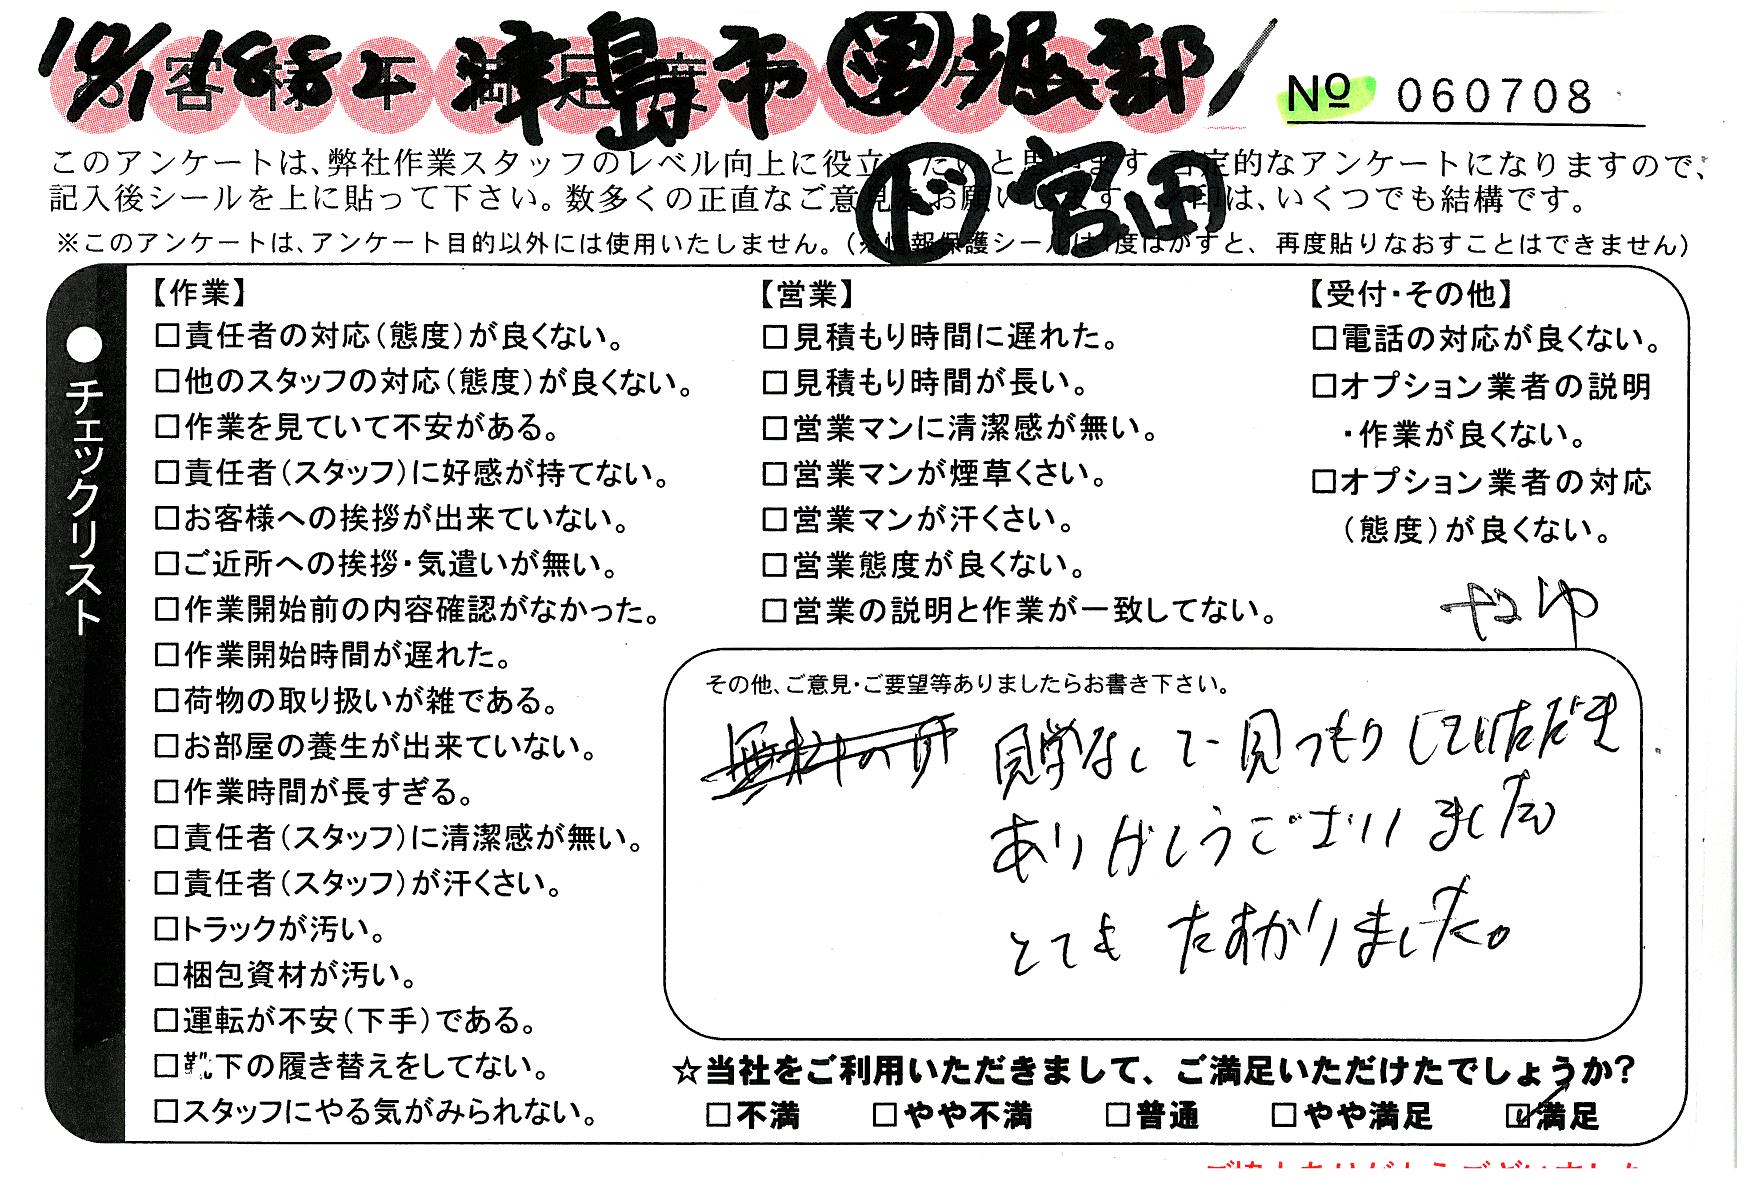 10/1 188上 津島市 堀部/
№ 060708
ド 宮田
このアンケートは、弊社作業スタッフのレベル向上に役立 たいと思います 否定的なアンケートになりますので、
記入後シールを上に貼って下さい。数多くの正直なご意見をお願いします 印は、いくつでも結構です。
※このアンケートは、アンケート目的以外には使用いたしません。(※情報保護シールは1度はがすと、再度貼りなおすことはできません)
●チェックリスト
【作業】
□責任者の対応(態度)が良くない。
□他のスタッフの対応(態度)が良くない。
□作業を見ていて不安がある。
□責任者(スタッフ)に好感が持てない。
□お客様への挨拶が出来ていない。
□ご近所への挨拶・気遣いが無い。
□作業開始前の内容確認がなかった。
□作業開始時間が遅れた。
□荷物の取り扱いが雑である。
□お部屋の養生が出来ていない。
□作業時間が長すぎる。
□責任者(スタッフ)に清潔感が無い。
□責任者(スタッフ)が汗くさい。
□トラックが汚い。
□梱包資材が汚い。
□運転が不安(下手)である。
□靴下の履き替えをしてない。
□スタッフにやる気がみられない。
【営業】
□見積もり時間に遅れた。
□見積もり時間が長い。
□営業マンに清潔感が無い。
□営業マンが煙草くさい。
□営業マンが汗くさい。
□営業態度が良くない。
□営業の説明と作業が一致してない。
【受付・その他】
□電話の対応が良くない。
□オプション業者の説明
・作業が良くない。
□オプション業者の対応
(態度)が良くない。
その他、ご意見・ご要望等ありましたらお書き下さい。
見学なしで見つもりしていただき
ありがとうございました
とても たすかりました。
☆当社をご利用いただきまして、ご満足いただけたでしょうか?
□不満 □やや不満 □普通 □やや満足 ☑満足